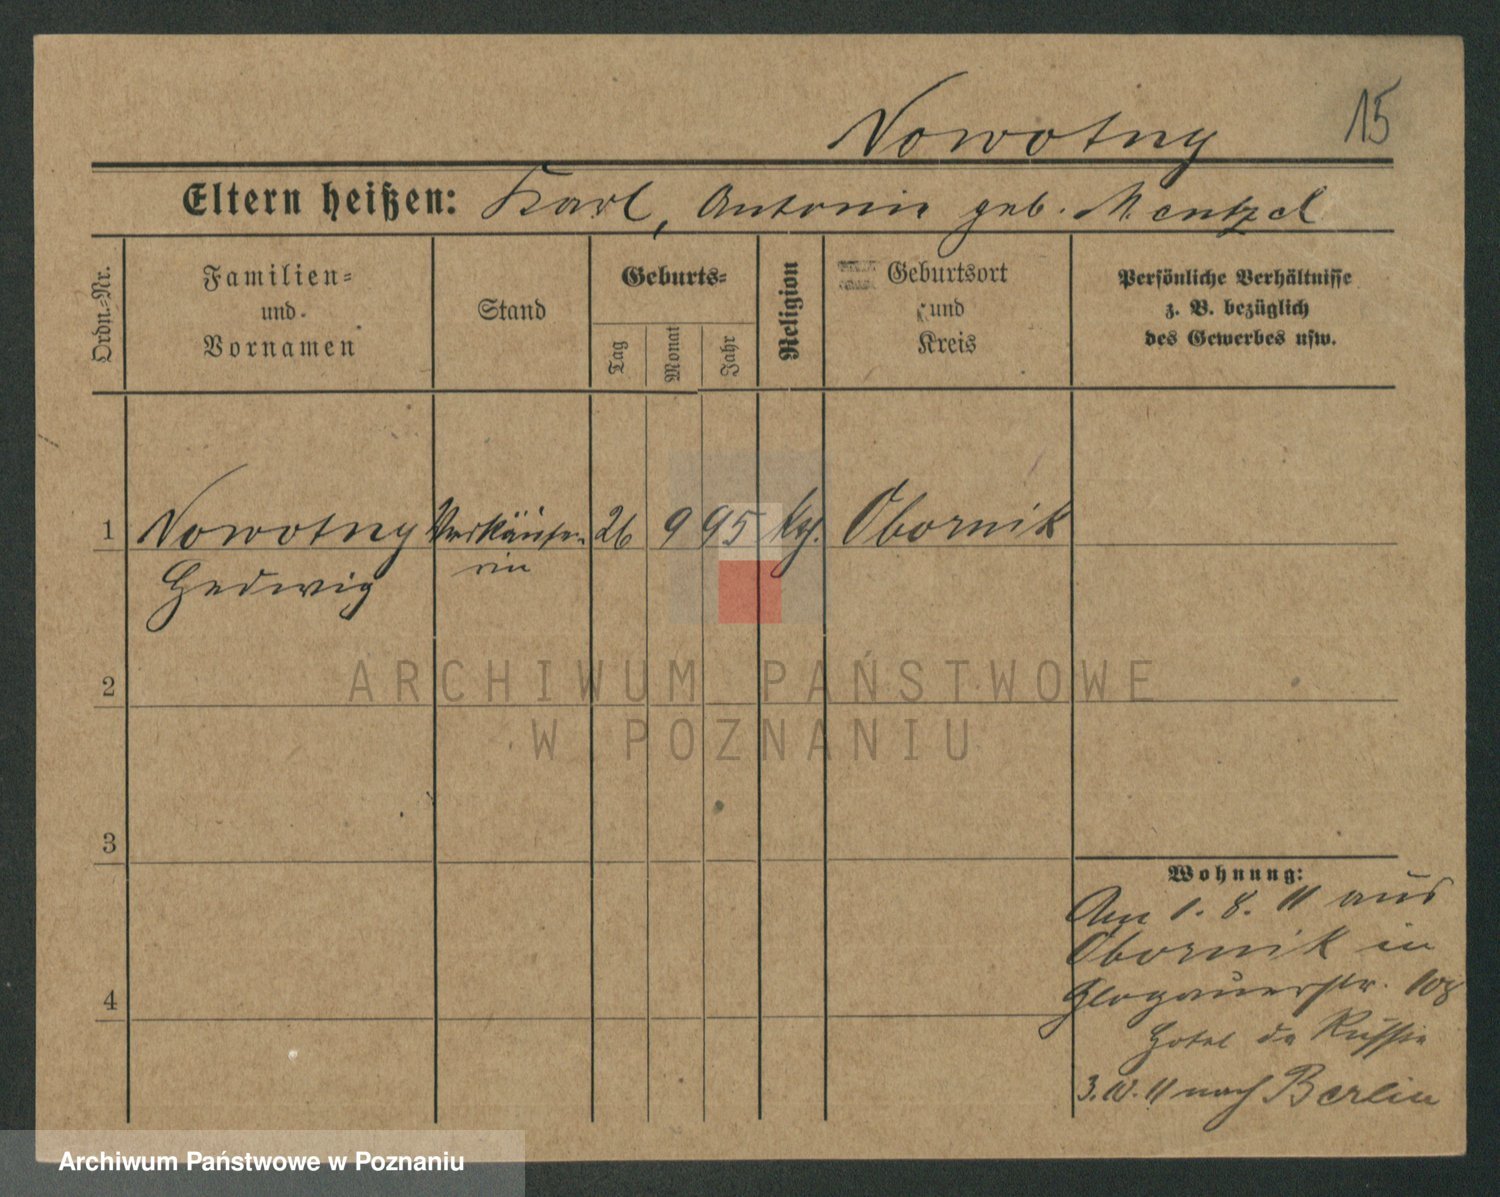 Nowotny 15
Eltern heißen: Karl, Antonie geb. Mentzel
Ordn.-Nr.
Familien-
und
Vornamen
Stand
Geburts-
Tag
Monat
Jahr
Religion
Geburtsort
und
Kreis
Persönliche Verhältnisse
z. B. bezüglich
des Gewerbes usw.
1 Nowotny Verkäufe- 26 9 95 Obornik
Hedwig rin
2
3
4
Wohnung:
Am 1. 8. 11 aus
Obornik in
Glogauerstr. 108
Hotel de Russie
3. 10. 11 nach Berlin
ARCHIWUM PAŃSTWOWE
W POZNANIU
Archiwum Państwowe w Poznaniu